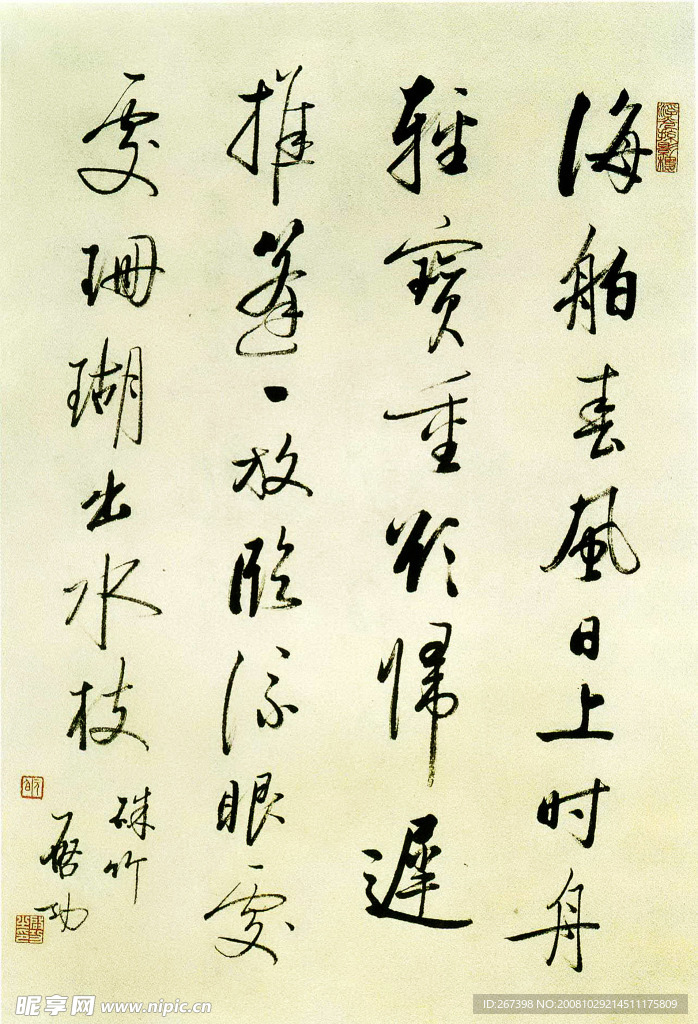 浮光掠影樓
海舶春風日上时舟
輕寶重欲歸遲
推篷一放臨流眼處
處珊瑚出水枝
硃竹
啓功
昵享网 www.nipic.cn
ID:267398 NO:20081029214511175809